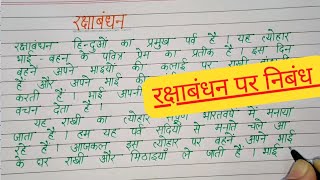 रक्षाबंधन
रक्षाबंधन हिन्दुओं का प्रमुख पर्व है। यह त्योहार
भाई-बहन के पवित्र प्रेम का प्रतीक है। इस दिन
बहनें अपने भाइयों की कलाई पर राखी
है और अपने भाई की
करती है।
वचन देता है।
रक्षाबंधन पर निबंध
यह राखी का त्योहार संपूर्ण भारतवर्ष में मनाया
जाता है। हम यह पर्व सदियों से मनाते चले आ
रहे हैं। आजकल इस त्योहार पर बहनें अपने भाई
के घर राखी और मिठाइयाँ ले जाती है। भाई